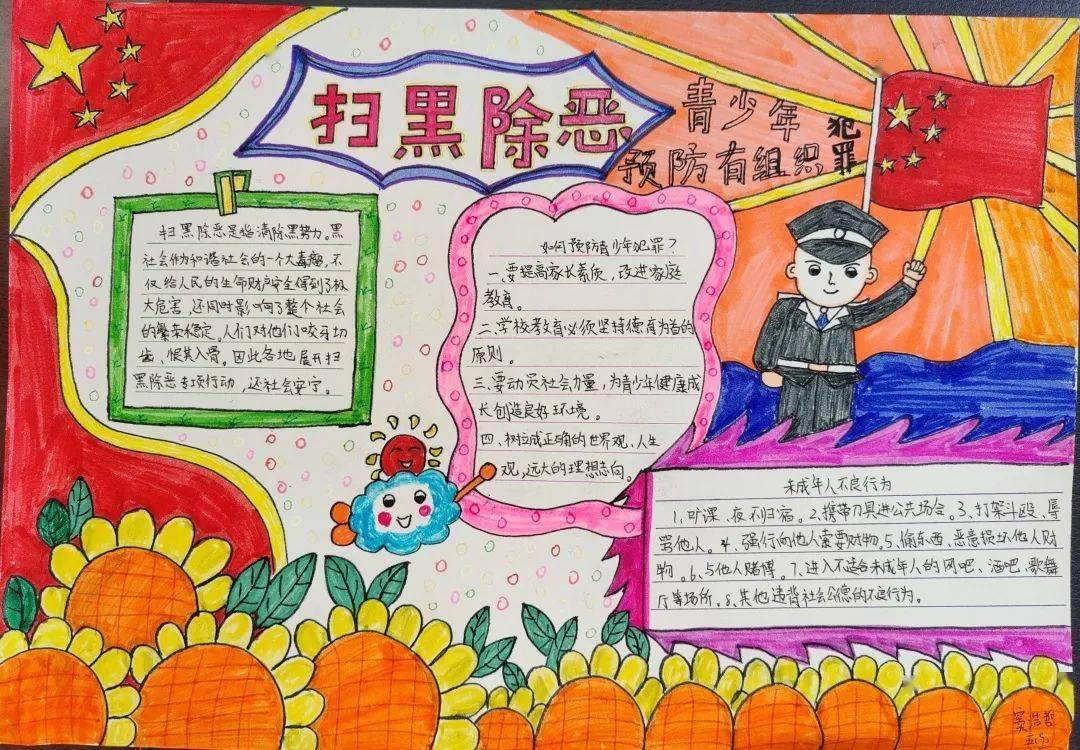 扫黑除恶
青少年
预防有组织
犯
罪
扫黑除恶是指清除黑势力。黑
社会作为和谐社会的一个大毒趣，不
仅给人民的生命财产安全得到了极
大危害，还同时影响了整个社会
的繁荣稳定。人们对他们咬牙切
齿、恨其入骨。因此各地展开扫
黑除恶专项行动，还社会安宁。
如何预防青少年犯罪？
一、要提高家长素质，改进家庭
教育。
二、学校教育必须坚持德育为者的
原则。
三、要动员社会力量，为青少年健康成
长创造良好环境。
四、树立成正确的世界观、人生
观，远大的理想志向。
未成年人不良行为
1、旷课、夜不归宿。2、携带刀具进公共场合。3、打架斗殴、辱
骂他人。4、强行向他人索要财物。5、偷东西、恶意损坏他人财
物。6、与他人赌博。7、进入不适合未成年人的网吧、酒吧、歌舞
厅等场所。8、其他违背社会公德的不良行为。